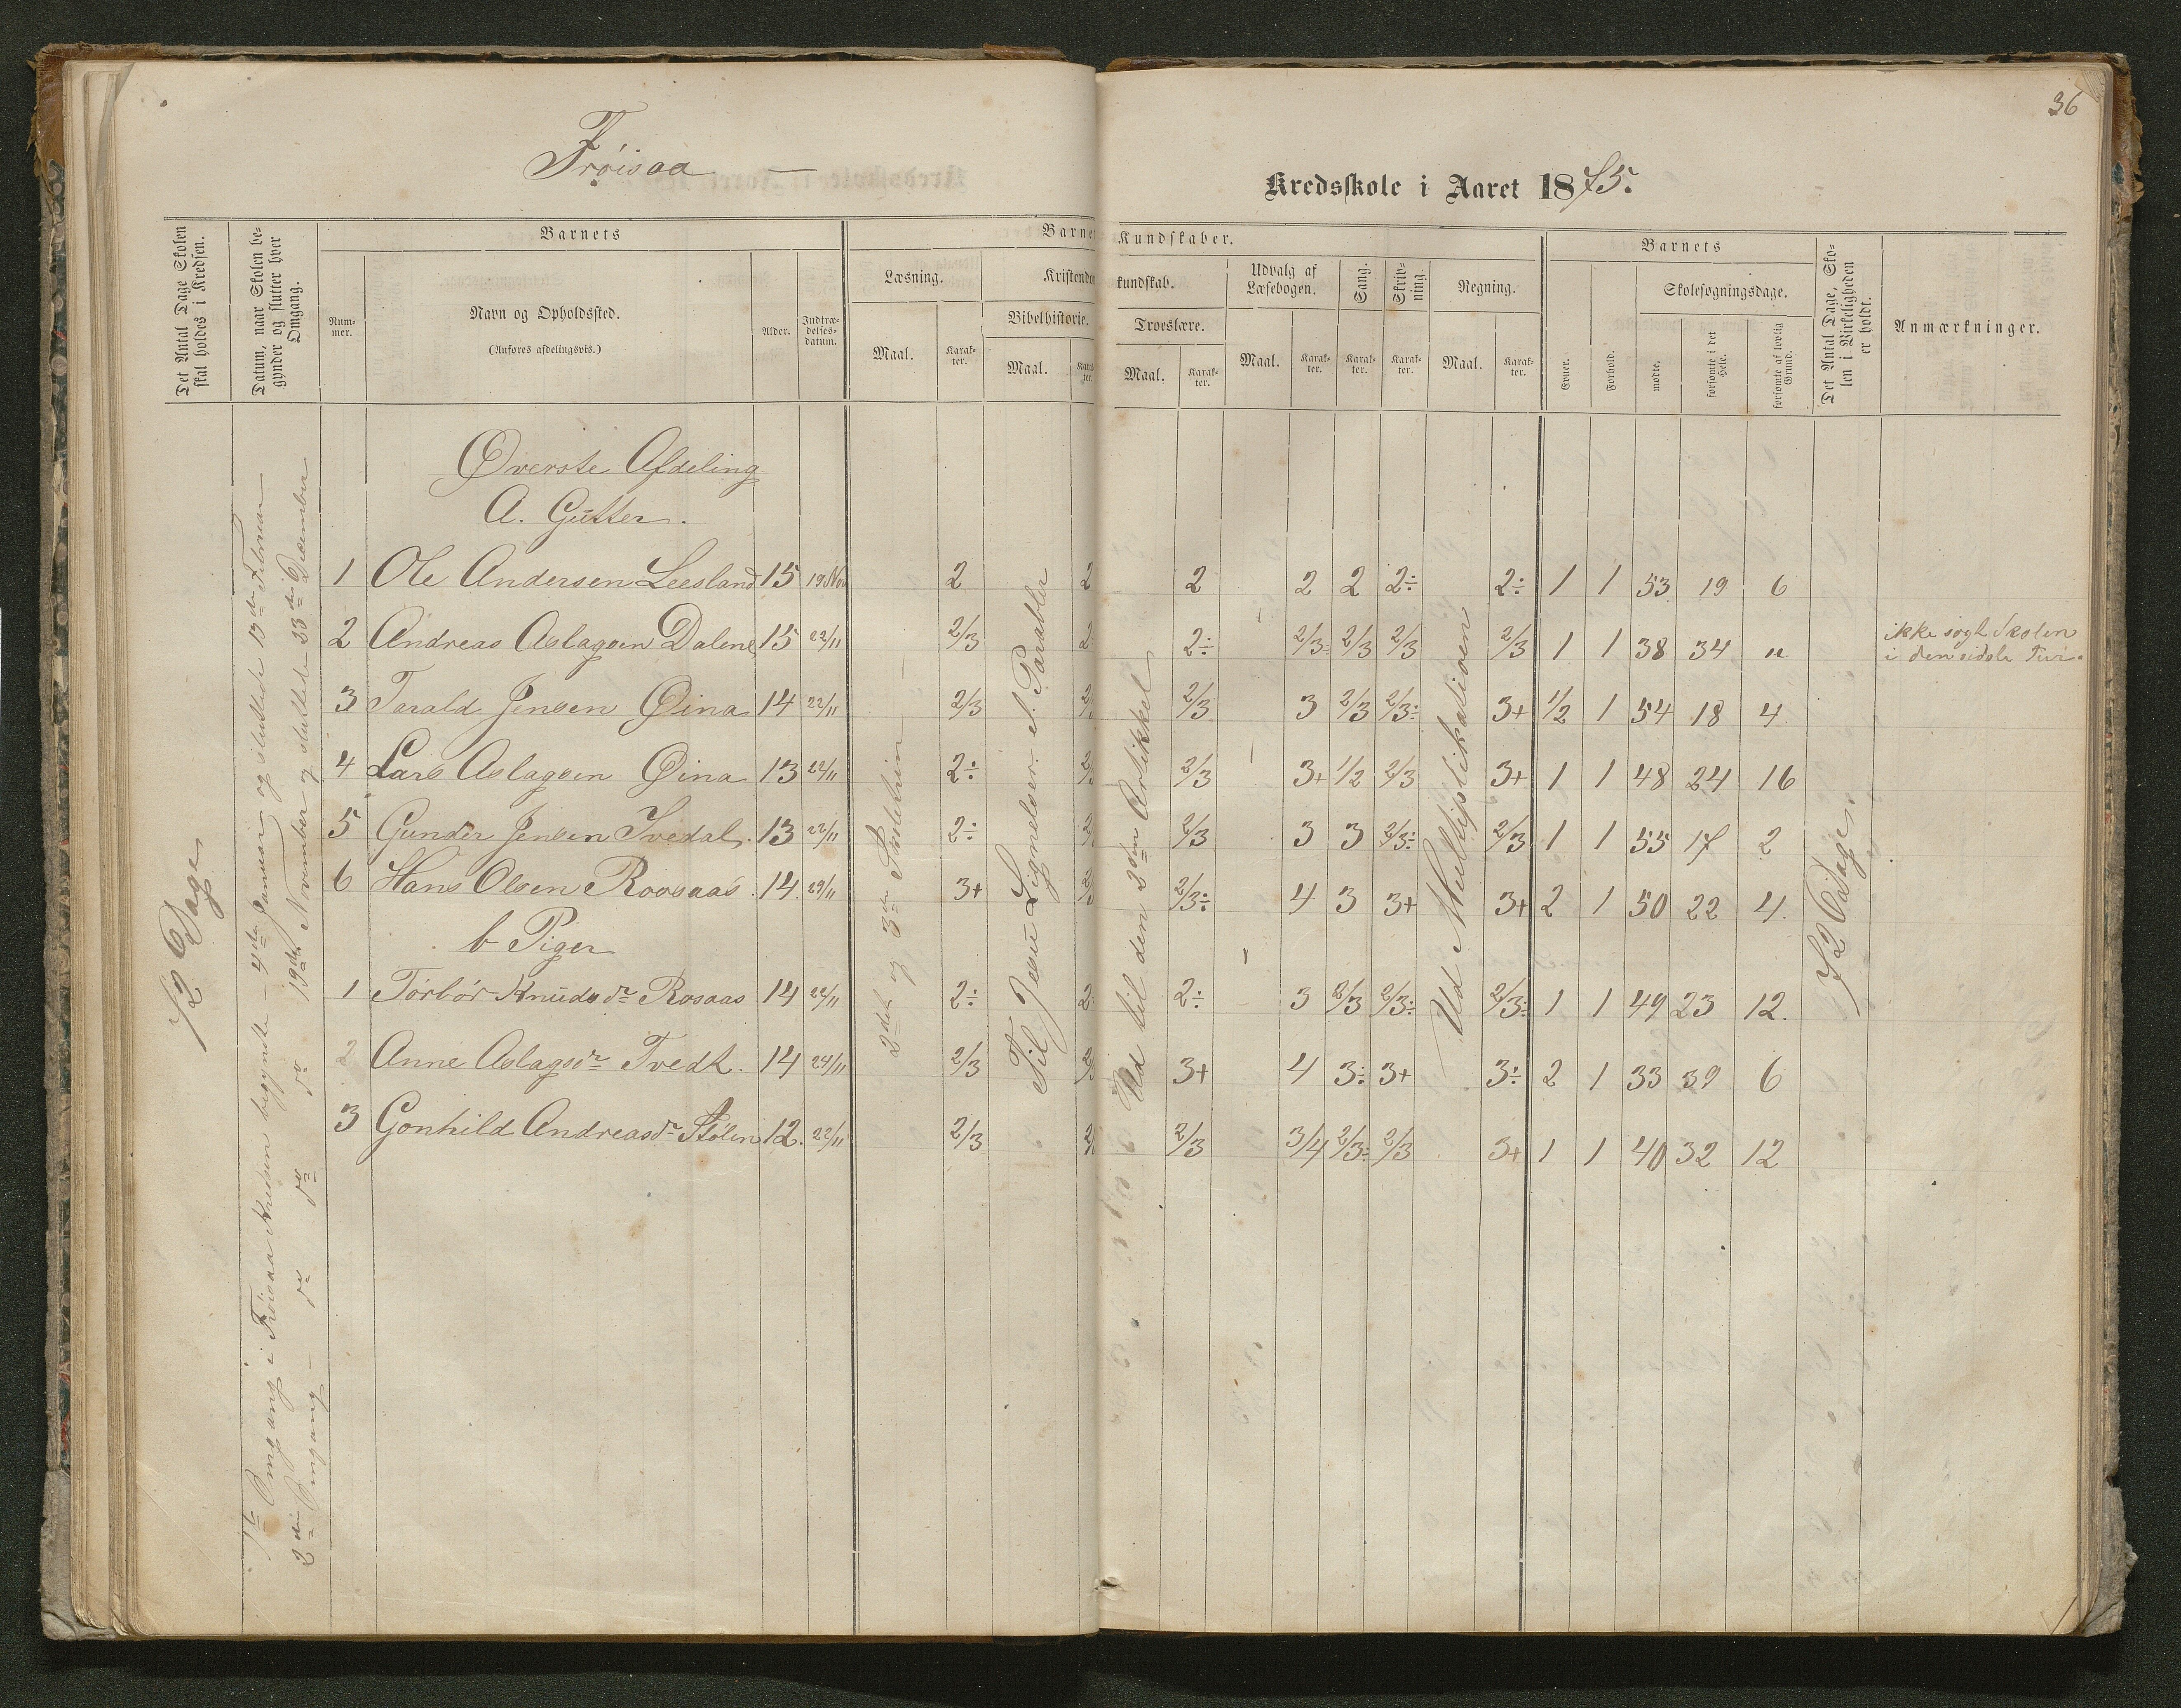 36
Frøisaa —
Kredsskole i Aaret 1875.
Det Antal Dage Skolen skal holdes i Kredsen.
Datum, naar Skolen begynder og slutter hver Omgang.
Barnets
Nummer.
Navn og Opholdssted.
(Anføres afdelingsvis.)
Alder.
Indtrædelses-datum.
Læsning.
Maal.
Karakter.
Bibelhistorie.
Maal.
Kundskaber.
kundskab.
Troeslære.
Maal.
Karakter.
Udvalg af Læsebogen.
Maal.
Karakter.
Sang.
Karakter.
Skrivning.
Karakter.
Regning.
Maal.
Karakter.
Barnets
Evner.
Forhold.
Skolesøgningsdage.
mødte.
forsømte i det Hele.
forsømte af lovlig Grund.
Det Antal Dage, Skolen i Virkeligheden er holdt.
Anmærkninger.
72 Dage
1ste Omgang i Frøisaa Kredsen begyndte – 4de Januar og sluttede 13de Februar
2den Omgang – do do do 19de November og sluttede 23de December
Øverste Afdeling
A. Gutter.
1 Ole Andersen Leesland 15 19 Nov 2 2 2 2 2 2÷ 2÷ 1 1 53 19 6
2 Andreas Aslagsen Dalene 15 22/11 2/3 2 2÷ 2/3÷ 2/3 2/3 2/3 1 1 38 34 "
ikke søgt Skolen
i den sidste
3 Tarald Jensen Øina 14 22/11 2/3 2/3 3 2/3 2/3÷ 3+ 1/2 1 54 18 4
4 Lars Aslagsen Øina 13 22/11 2÷ 2/3 3+ 1/2 2/3 3+ 1 1 48 24 16
5 Gunder Jensen Tvedal. 13 22/11 2÷ 2/3 3 3 2/3÷ 2/3 1 1 55 17 2
6 Hans Olsen Roosaas. 14 29/11 3+ 2/3÷ 4 3 3+ 3+ 2 1 50 22 4.
b Piger
1 Tørbør Knudsdr Rosaas 14 22/11 2÷ 2 2÷ 3 2/3 2/3÷ 2/3÷ 1 1 49 23 12.
2 Anne Aslagsdr Tvedt. 14 24/11 2/3 3+ 4 3÷ 3+ 3÷ 2 1 33 39 6
3 Gonhild Andreasdr Stølen 12. 22/11 2/3 2/3 3/4 2/3÷ 2/3 3+ 1 1 40 32 12
Til Jesu Lignelser el. Parabler
Ud til den 3die Artikkel
Ud Multiplikationen
72 Dage